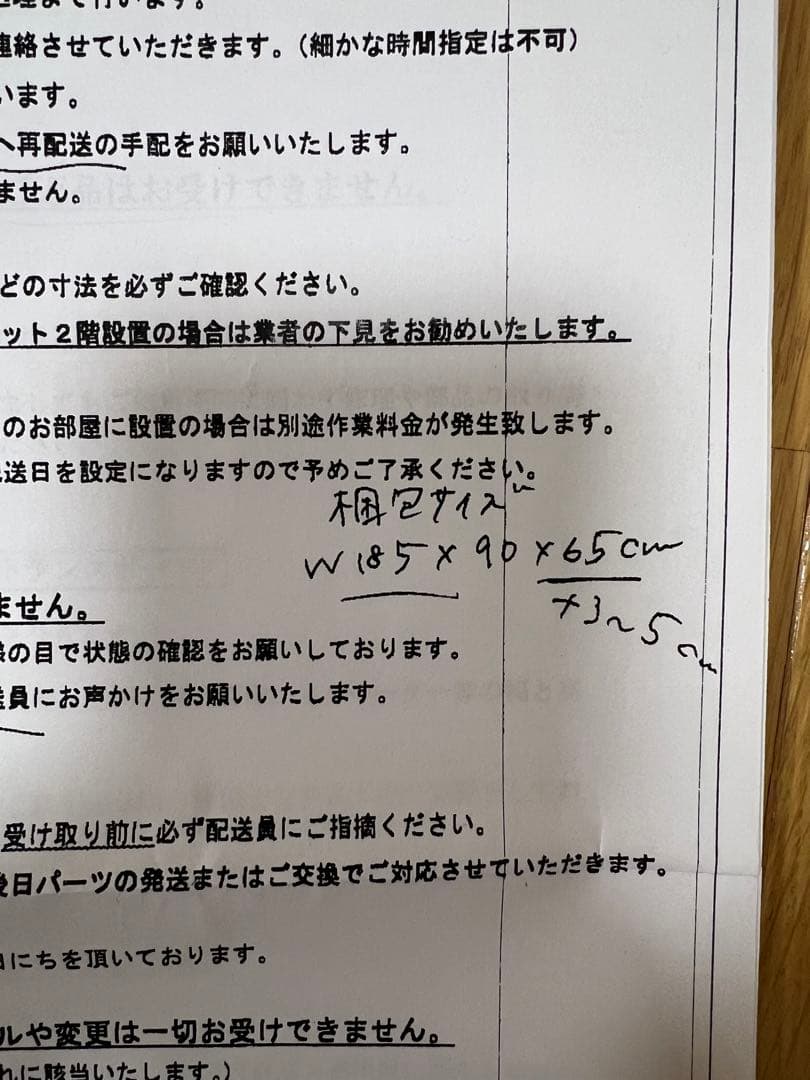 連絡させていただきます。(細かな時間指定は不可)
います。
へ再配送の手配をお願いいたします。
ません。
品はお受けできません。
どの寸法を必ずご確認ください。
ット2階設置の場合は業者の下見をお勧めいたします。
のお部屋に設置の場合は別途作業料金が発生致します。
送日を設定になりますので予めご了承ください。
梱包サイズ
W185×90×65cm
+3~5cm
ません。
の目で状態の確認をお願いしております。
員にお声かけをお願いいたします。
受け取り前に必ず配送員にご指摘ください。
後日パーツの発送またはご交換でご対応させていただきます。
日にちを頂いております。
ルや変更は一切お受けできません。
れに該当いたします。)